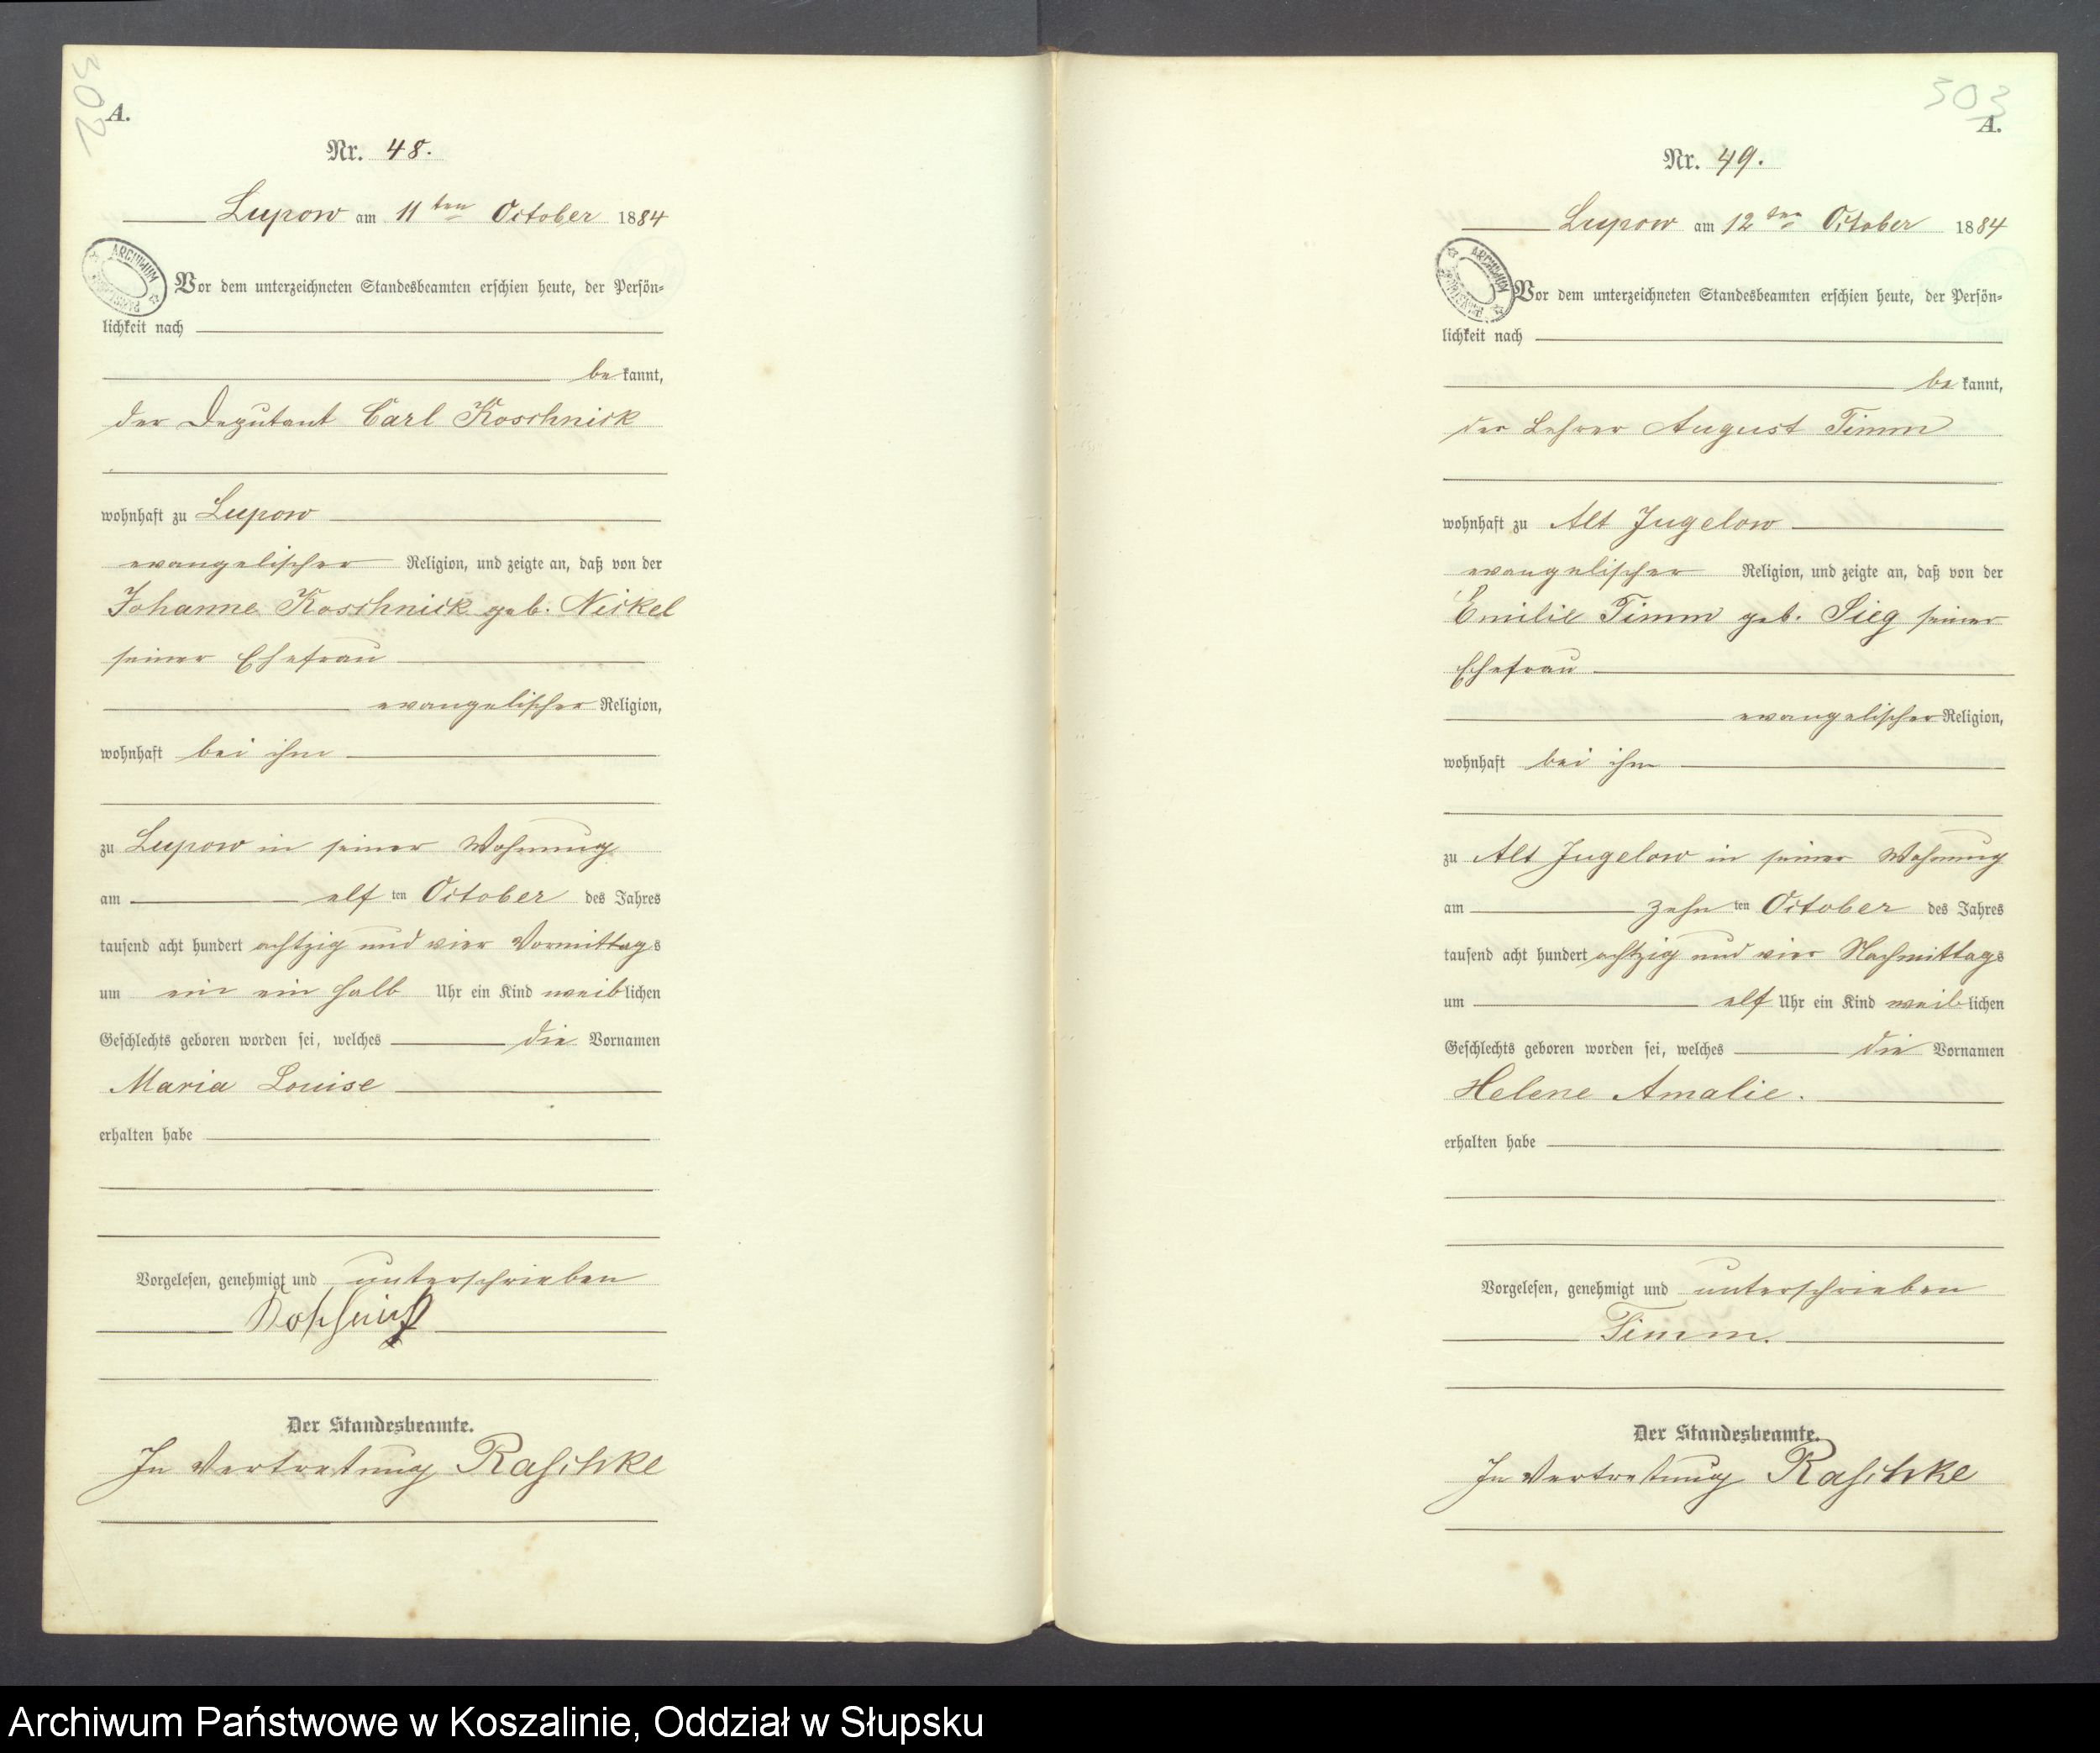 302
A.
Nr. 48.
Lupow am 11 ten October 1884
ARCHIWUM
Vor dem unterzeichneten Standesbeamten erschien heute, der Persön-
lichkeit nach
be kannt,
der Deputant Carl Koschnick
wohnhaft zu Lupow
evangelischer Religion, und zeigte an, daß von der
Johanne Koschnick geb. Nickel
seiner Ehefrau
evangelischer Religion,
wohnhaft bei ihm
zu Lupow in seiner Wohnung
am elf ten October des Jahres
tausend acht hundert achtzig und vier Vormittags
um ein halb Uhr ein Kind weiblichen
Geschlechts geboren worden sei, welches die Vornamen
Maria Louise
erhalten habe
Vorgelesen, genehmigt und unterschrieben
Der Standesbeamte.
In Vertretung Raschke
303
A.
Nr. 49.
Lupow am 12 ten October 1884
ARCHIWUM
Vor dem unterzeichneten Standesbeamten erschien heute, der Persön-
lichkeit nach
be kannt,
der Lehrer August Timm
wohnhaft zu Alt Jugelow
evangelischer Religion, und zeigte an, daß von der
Emilie Timm geb. Sieg seiner
Ehefrau
evangelischer Religion,
wohnhaft bei ihm
zu Alt Jugelow in seiner Wohnung
am zehn ten October des Jahres
tausend acht hundert achtzig und vier Nachmittags
um elf Uhr ein Kind weiblichen
Geschlechts geboren worden sei, welches die Vornamen
Helene Amalie.
erhalten habe
Vorgelesen, genehmigt und unterschrieben
Timm.
Der Standesbeamte.
In Vertretung Raschke
Archiwum Państwowe w Koszalinie, Oddział w Słupsku